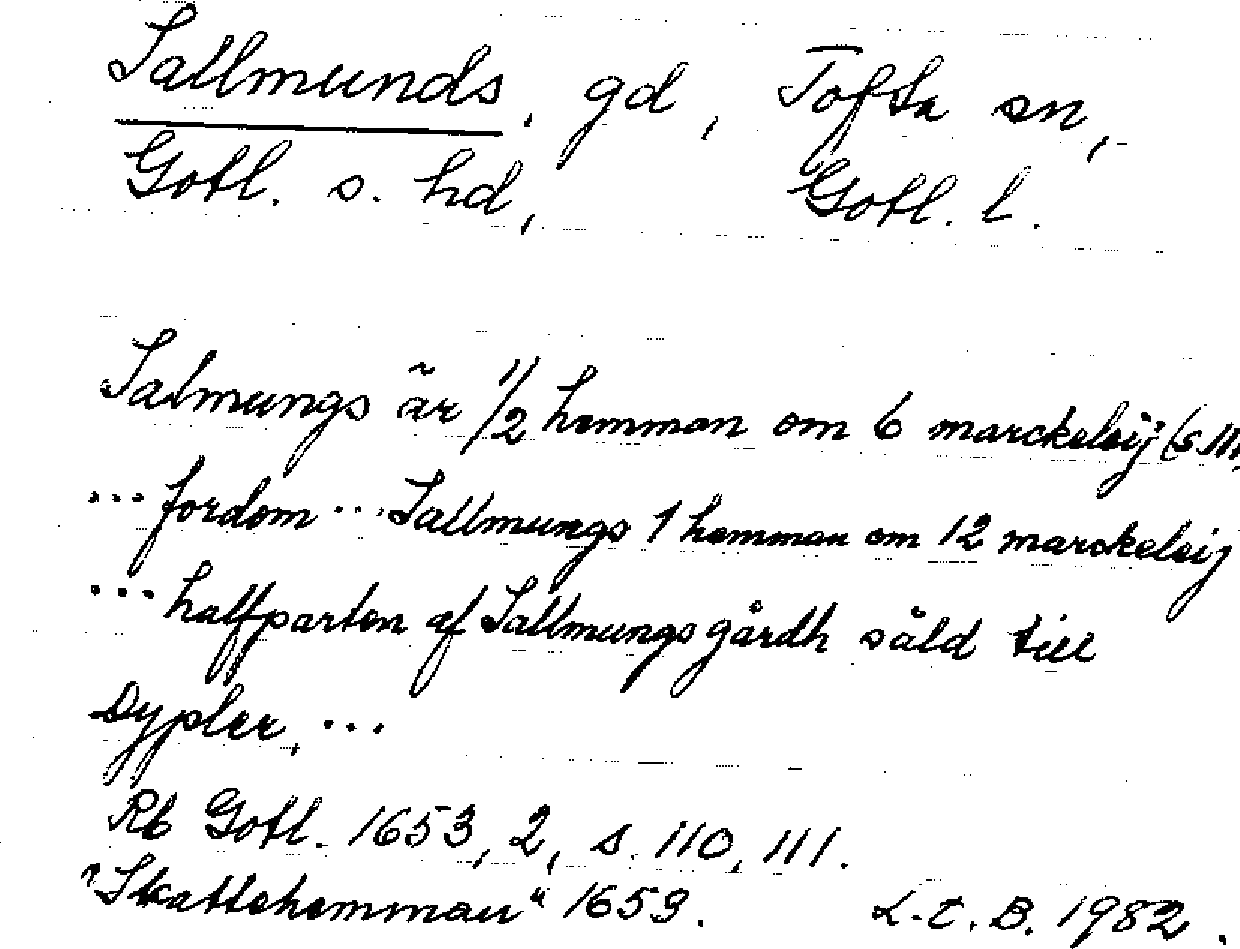 Sallmunds, gd, Tofta sn,
Gotl. s. hd, Gotl. l.
Salmungs är 1/2 hemman om 6 marckeleij (s. 111)
... fordom ... Sallmungs 1 hemman om 12 marckeleij
... halfparten af Sallmungs gårdh såld till
Dypler, ...
Rb Gotl. 1653, 2, s. 110, 111.
"Skattehemman" 1659. L.E.B. 1982.